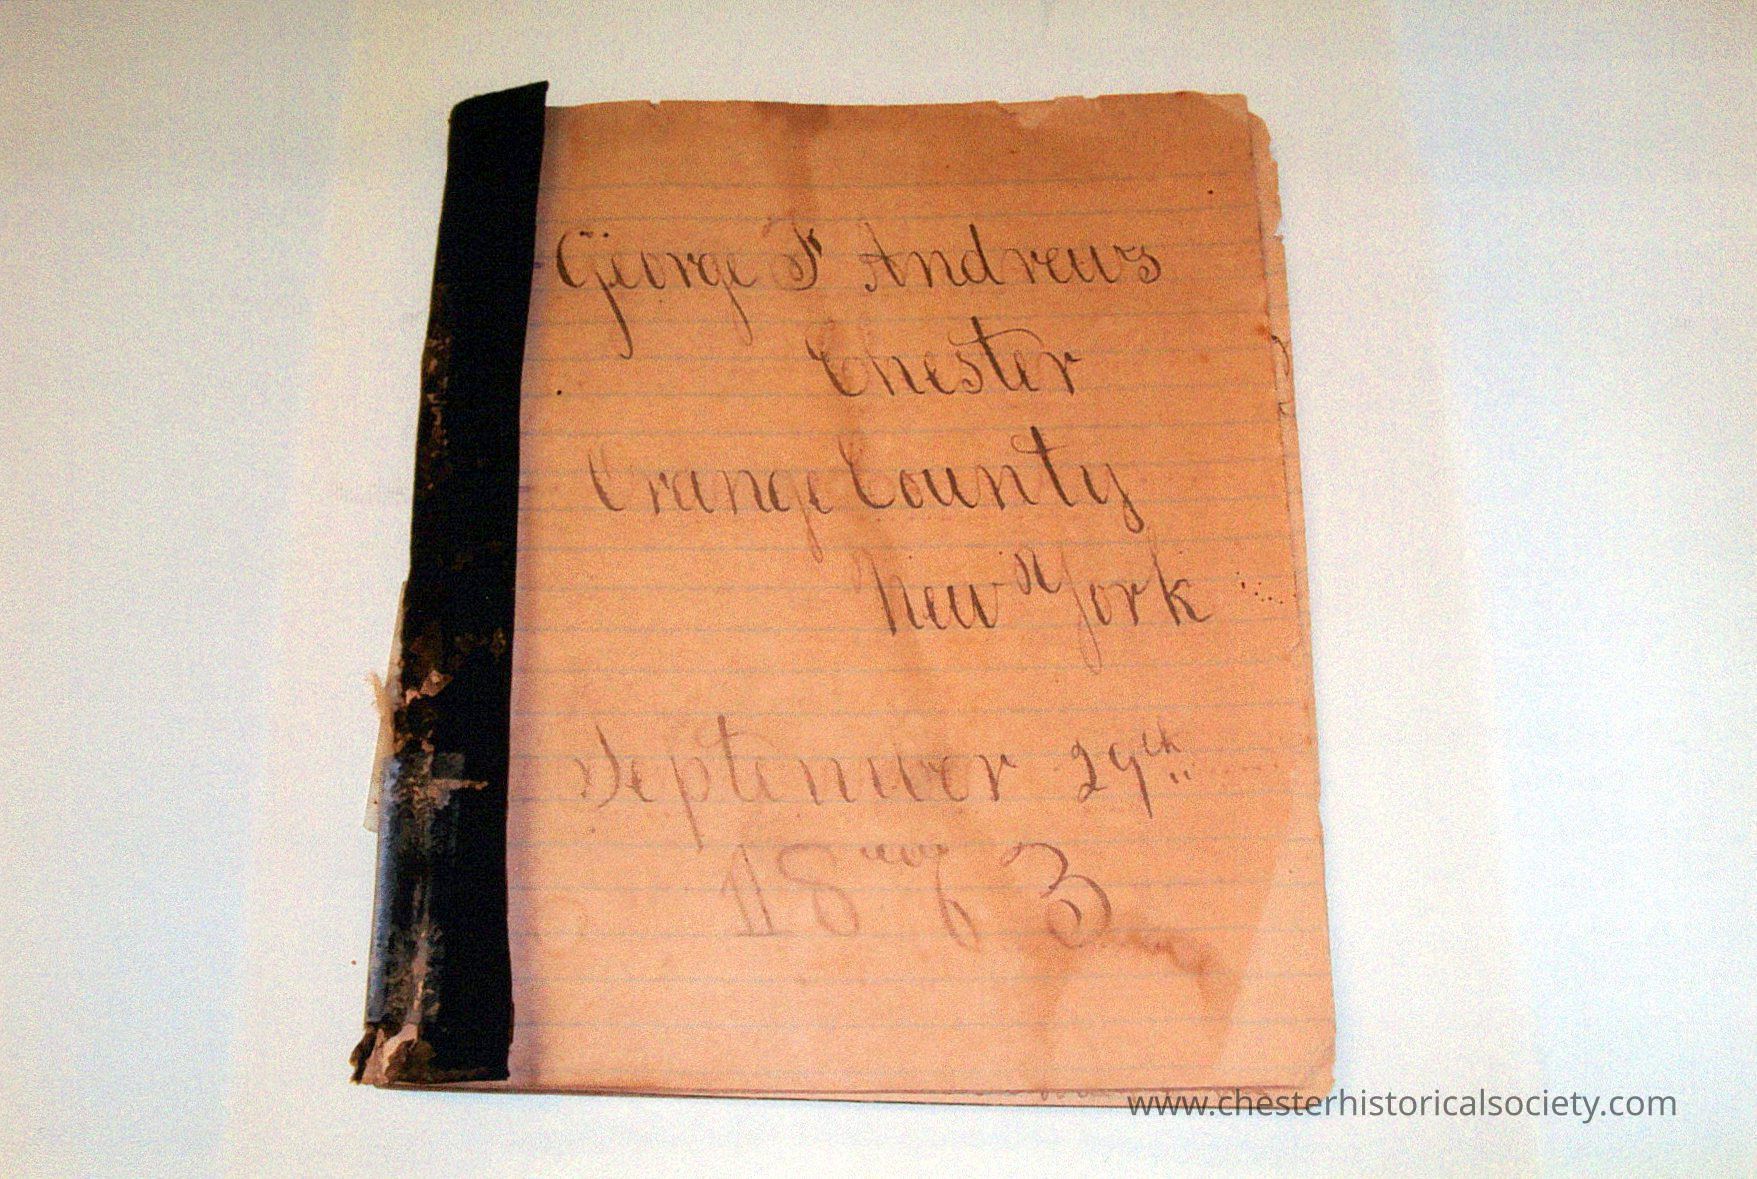 George F Andrews
Chester
Orange County
New York
September 29th
1863
www.chesterhistoricalsociety.com